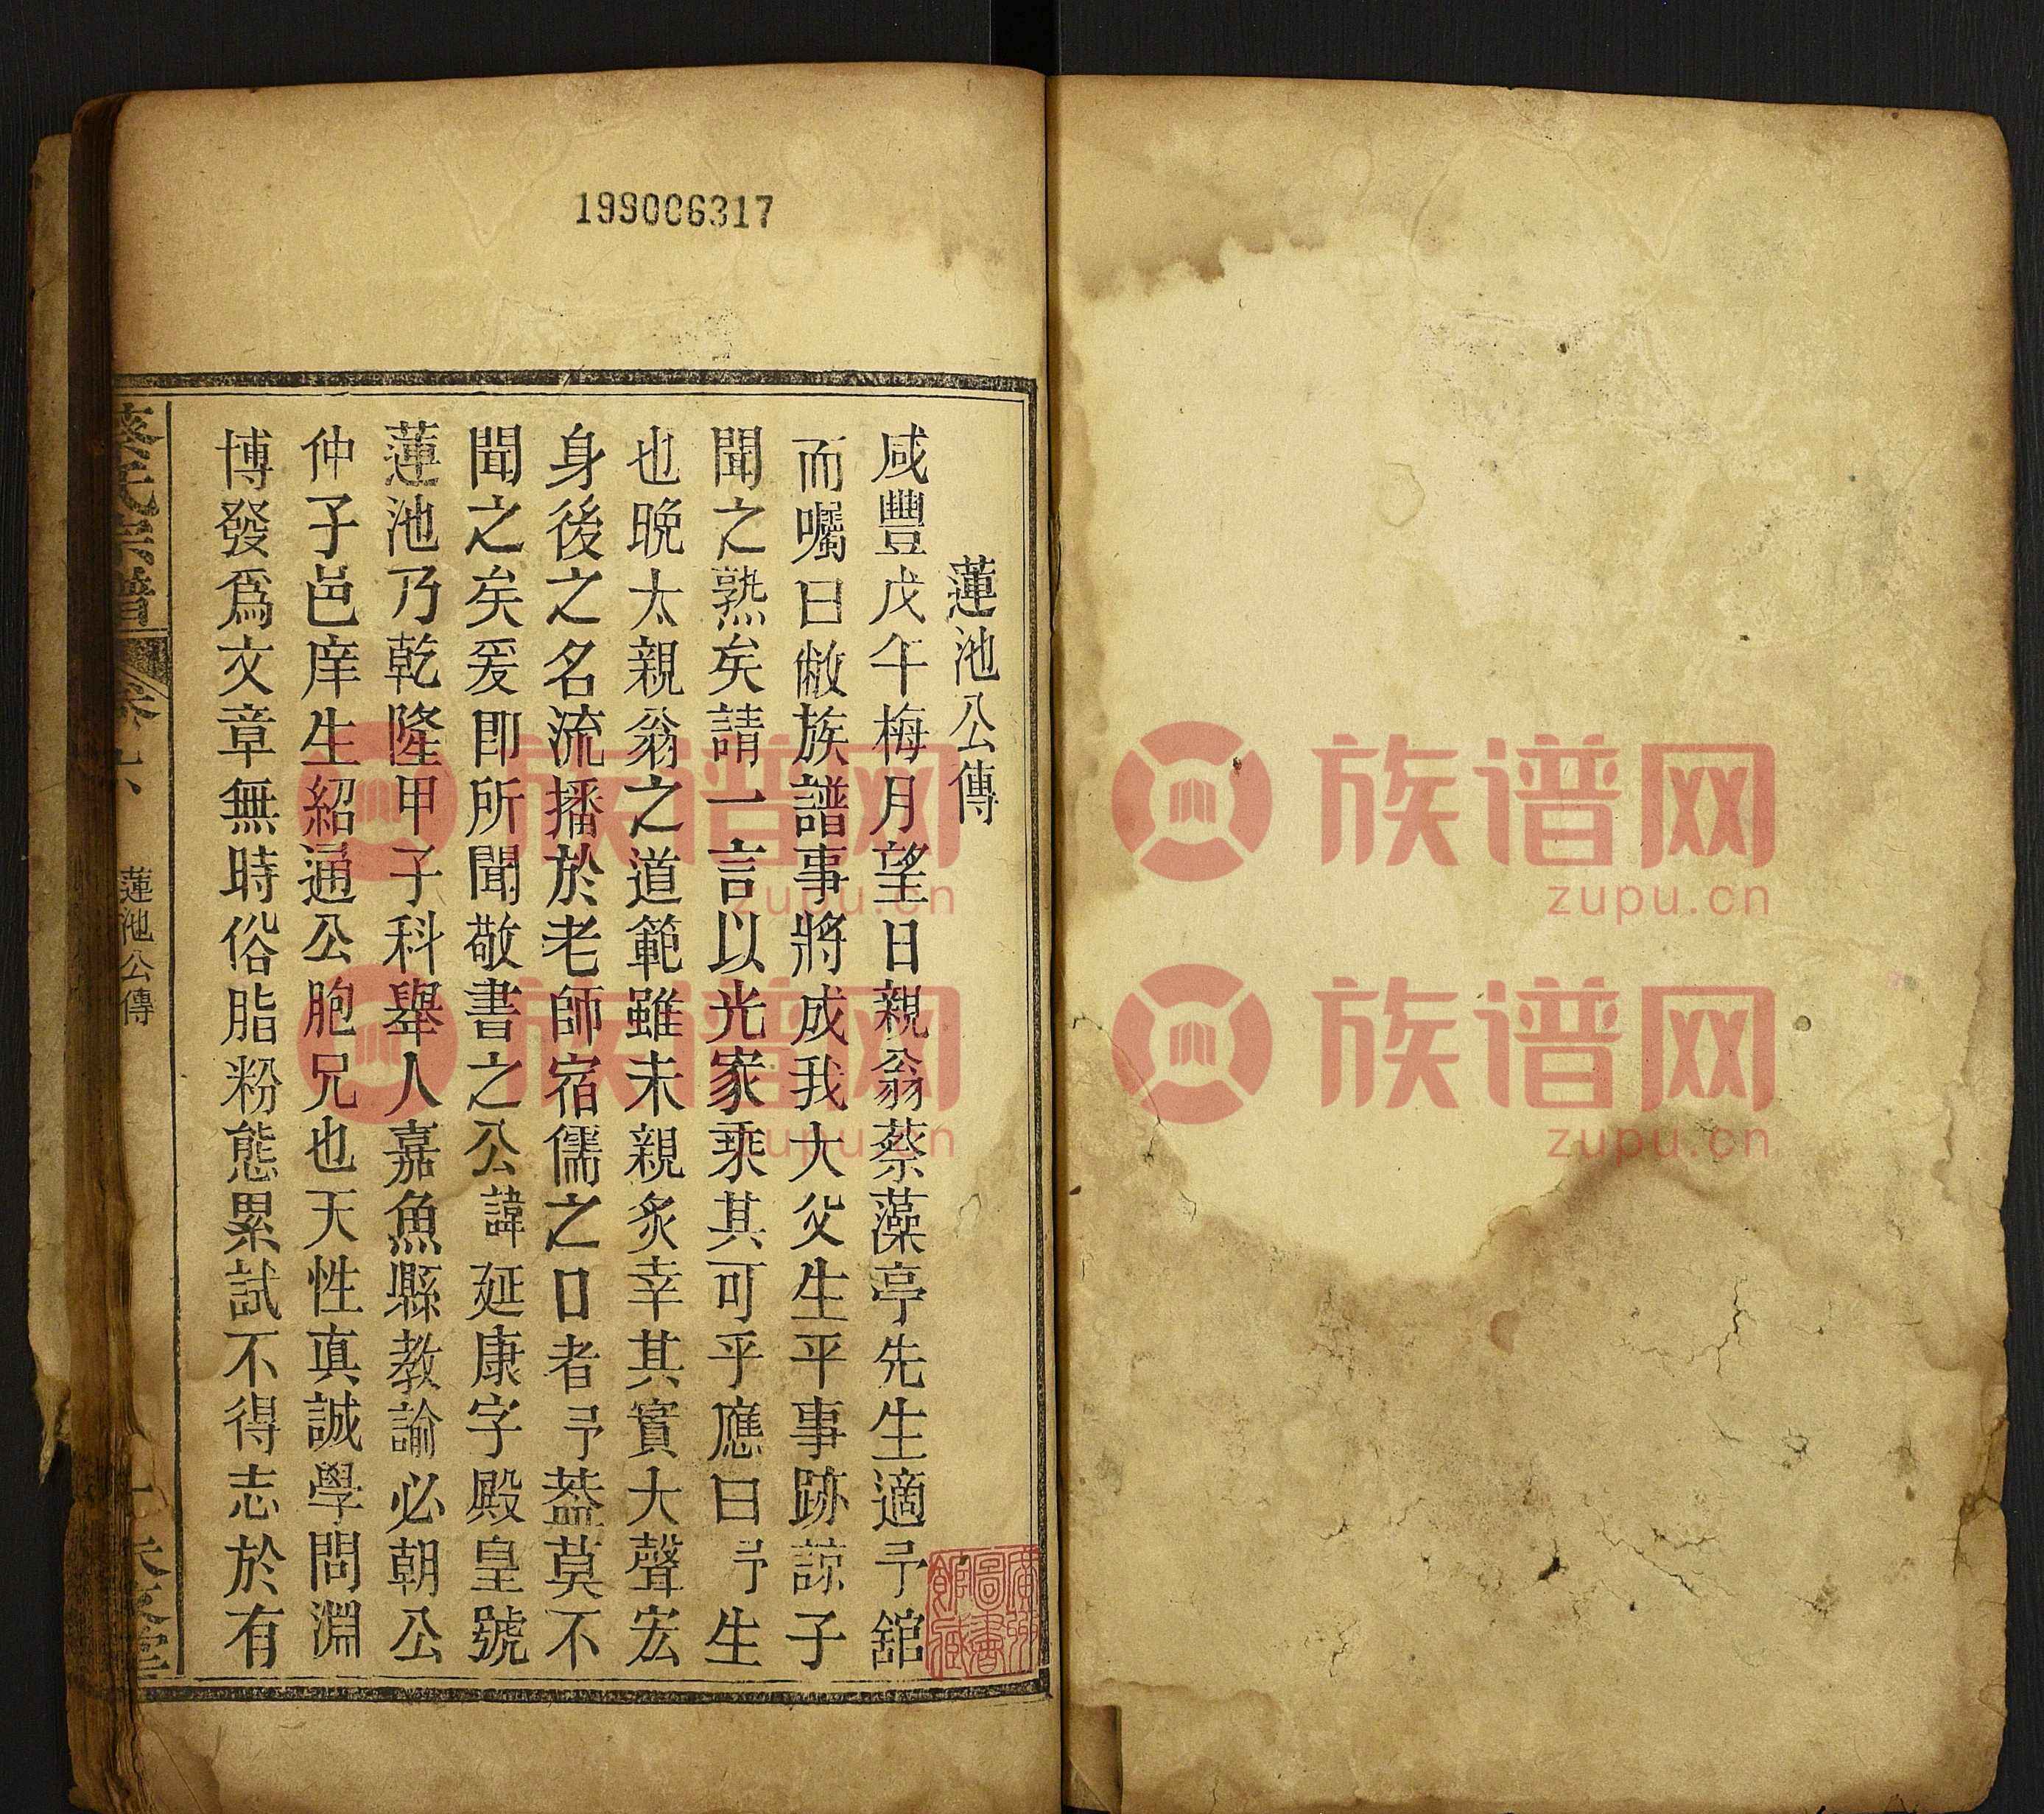 199006317
蓮池公傳
咸豐戊午梅月望日親翁蔡藻亭先生適予舘
而囑曰敝族譜事將成我大父生平事跡諒子
聞之熟矣請一言以光家乘其可乎應曰予生
也晚太親翁之道範雖未親炙幸其實大聲宏
身後之名流播於老師宿儒之口者予葢莫不
聞之矣爰即所聞敬書之公諱延康字殿皇號
蓮池乃乾隆甲子科舉人嘉魚縣教諭必朝公
仲子邑庠生紹通公胞兄也天性真誠學問淵
博發爲文章無時俗脂粉態累試不得志於有
蔡氏宗譜
卷六
蓮池公傳
廣州
圖書
館藏
族谱网
zupu.cn
族谱网
zupu.cn
族谱网
zupu.cn
族谱网
zupu.cn